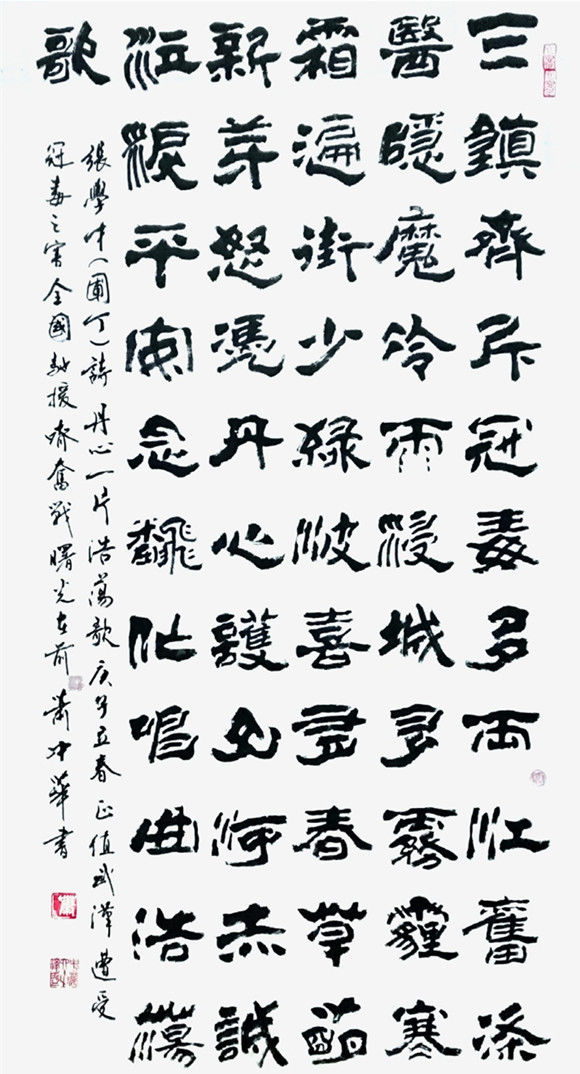 三鎮齊斥冠毒多両江奮滌
醫隱魔冷雨浸城多霧霾寒
霜遍街少綠波喜春草萌
新芽怒憑丹心護山河赤誠
淚平安念飜作唱曲浩蕩
歌
張學中（圃丁）詩丹心一片浩蕩歌庚子立春正值武漢遭受
冠毒之害全國馳援齊奮戰曙光在前蕭冲華書